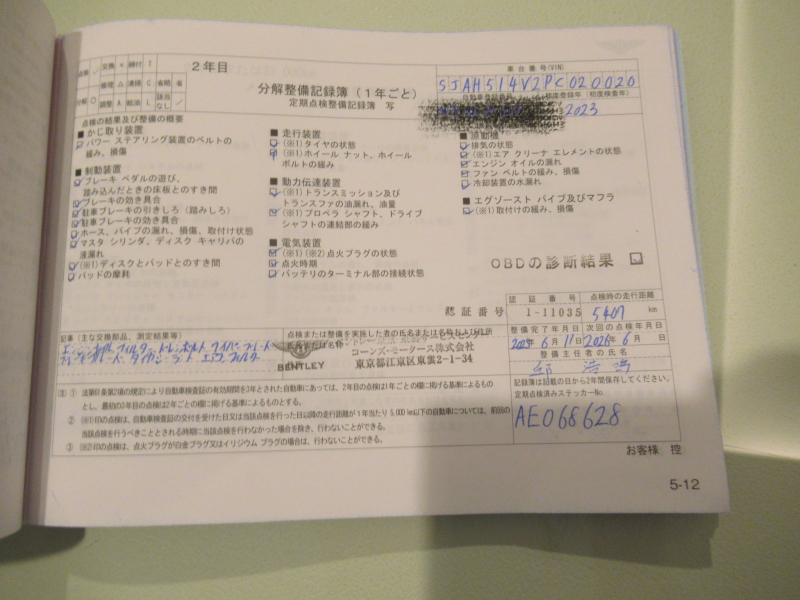 2年目
点検 ✓ 交換 × 締付 T
修理 △ 清掃 C 省略 省
分解 ○ 調整 A 給油 L 該当なし ／
分解整備記録簿（1年ごと）
定期点検整備記録簿 写
車台番号(VIN)
SJAH514V2PC020020
2023
点検の結果及び整備の概要
■ かじ取り装置
パワー ステアリング装置のベルトの
緩み、損傷
■ 制動装置
ブレーキ ペダルの遊び、
踏み込んだときの床板とのすき間
ブレーキの効き具合
駐車ブレーキの引きしろ（踏みしろ）
駐車ブレーキの効き具合
ホース、パイプの漏れ、損傷、取付け状態
マスタ シリンダ、ディスク キャリパの
液漏れ
（※1）ディスクとパッドとのすき間
パッドの摩耗
■ 走行装置
（※1）タイヤの状態
（※1）ホイール ナット、ホイール
ボルトの緩み
■ 動力伝達装置
（※1）トランスミッション及び
トランスファの油漏れ、油量
（※1）プロペラ シャフト、ドライブ
シャフトの連結部の緩み
■ 電気装置
（※1）（※2）点火プラグの状態
点火時期
バッテリのターミナル部の接続状態
■ 原動機
排気の状態
（※1）エア クリーナ エレメントの状態
エンジン オイルの漏れ
ファン ベルトの緩み、損傷
冷却装置の水漏れ
■ エグゾースト パイプ及びマフラ
（※1）取付けの緩み、損傷
OBDの診断結果
認証番号
認証番号 点検時の走行距離
1-11035 5407 km
整備完了年月日 次回の点検年月日
2025年 6月 11日 2026年 6月 日
整備主任者の氏名
記録簿は記載の日から2年間保存してください。
定期点検済みステッカーNo.
AE068628
記事（主な交換部品、測定結果等）
点検または整備を実施した者の氏名または名称および住所
氏名または名称
コーンズ・モータース株式会社
東京都江東区東雲2-1-34
BENTLEY
注① 法第61条第2項の規定により自動車検査証の有効期間を3年とされた自動車にあっては、2年目の点検は1年ごとの欄に掲げる基準によるもの
とし、最初の3年目の点検は2年ごとの欄に掲げる基準によるものとする。
② (※1)印の点検は、自動車検査証の交付を受けた日又は当該点検を行った日以降の走行距離が1年当たり5,000 km以下の自動車については、前回の
当該点検を行うべきこととされる時期に当該点検を行わなかった場合を除き、行わないことができる。
③ (※2)印の点検は、点火プラグが白金プラグ又はイリジウム プラグの場合は、行わないことができる。
お客様 控
5-12